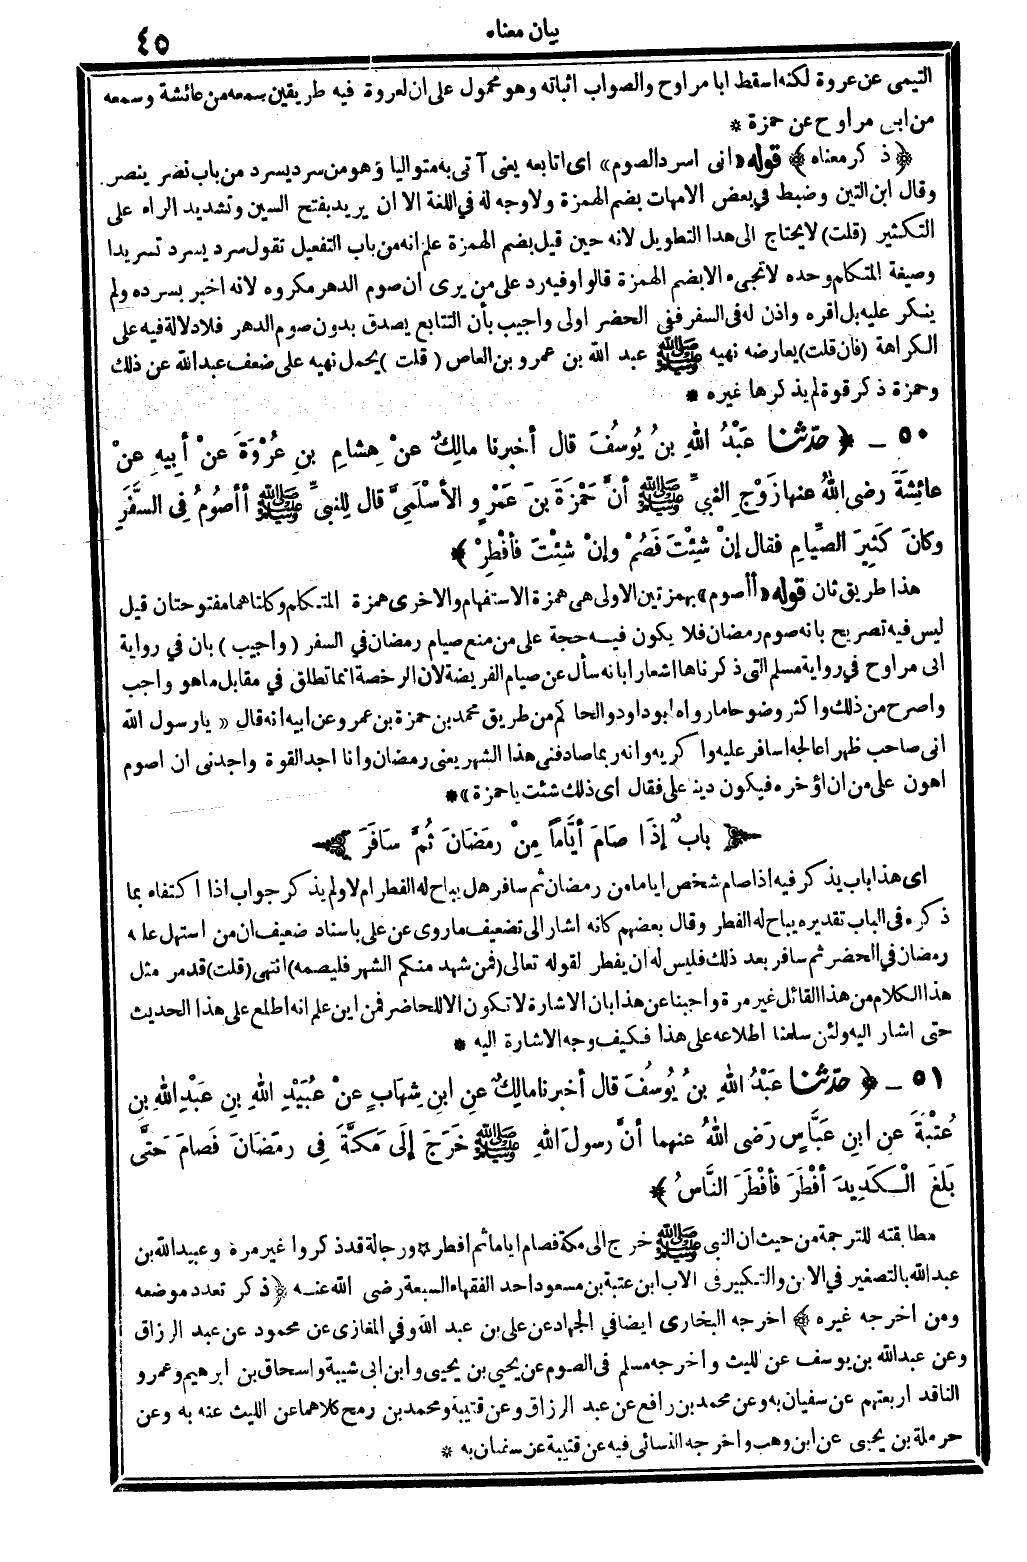 بيان معناه
٤٥
التيمى عن عروة لكنه اسقط ابا مراوح والصواب اثباته وهو محمول على ان لعروة فيه طريقين سمعه من عائشة وسمعه
من ابى مراوح عن حمزة *
﴿ ذكر معناه ﴾ قوله «انى اسرد الصوم» اى اتابعه يعنى آتى به متواليا وهو من سرد يسرد من باب نصر ينصر.
وقال ابن التين وضبط في بعض الامهات بضم الهمزة ولا وجه له في اللغة الا ان يريد بفتح السين وتشديد الراء على
التكثير (قلت) لا يحتاج الى هذا التطويل لانه حين قيل بضم الهمزة علم انه من باب التفعيل تقول سرد يسرد تسريدا
وصيغة المتكلم وحده لا تجىء الا بضم الهمزة قالوا وفيه رد على من يرى ان صوم الدهر مكروه لانه اخبر بسرده ولم
ينكر عليه بل اقره واذن له فى السفر ففى الحضر اولى واجيب بأن التتابع يصدق بدون صوم الدهر فلا دلالة فيه على
الكراهة (فان قلت) يعارضه نهيه ﷺ عبد الله بن عمرو بن العاص (قلت) يحمل نهيه على ضعف عبدالله عن ذلك
وحمزة ذكر قوة لم يذكرها غيره *
٥٠ – ﴿ حدّثنا عَبْدُ اللهِ بنُ يُوسُفَ قال أخبرنا مالِكٌ عنْ هِشامِ بنِ عُرْوَةَ عنْ أبيهِ عنْ
عائِشَةَ رضى اللهُ عنها زَوْجِ النبىِّ ﷺ أنَّ حَمْزَةَ بنَ عَمْرٍو الأسْلَمِىَّ قال لِلنبىِّ ﷺ أأصُومُ فِى السَّفَرِ
وكانَ كَثِيرَ الصِّيامِ فقال إنْ شِئْتَ فَصُمْ وإنْ شِئْتَ فأفْطِرْ ﴾ *
هذا طريق ثان قوله «أأصوم» بهمزتين الاولى هى همزة الاستفهام والاخرى همزة المتكلم وكلتاهما مفتوحتان قيل
ليس فيه تصريح بانه صوم رمضان فلا يكون فيه حجة على من منع صيام رمضان في السفر (واجيب) بان في رواية
ابى مراوح في رواية مسلم التى ذكرناها اشعارا بانه سأل عن صيام الفريضة لان الرخصة انما تطلق في مقابل ما هو واجب
واصرح من ذلك واكثر وضوحا ما رواه ابو داود والحاكم من طريق محمد بن حمزة بن عمرو عن ابيه انه قال «يا رسول الله
انى صاحب ظهر اعالجه اسافر عليه واكريه وانه ربما صادفنى هذا الشهر يعنى رمضان وانا اجد القوة واجدنى ان اصوم
اهون على من ان اؤخره فيكون دينا على فقال اى ذلك شئت يا حمزة» *
بابٌ إذَا صَامَ أيَّاماً مِنْ رمَضَانَ ثُمَّ سافَرَ
اى هذا باب يذكر فيه اذا صام شخص اياما من رمضان ثم سافر هل يباح له الفطر ام لا ولم يذكر جواب اذا اكتفاء بما
ذكره فى الباب تقديره يباح له الفطر وقال بعضهم كانه اشار الى تضعيف ما روى عن على باسناد ضعيف ان من استهل عليه
رمضان في الحضر ثم سافر بعد ذلك فليس له ان يفطر لقوله تعالى (فمن شهد منكم الشهر فليصمه) انتهى (قلت) قد مر مثل
هذا الكلام من هذا القائل غير مرة واجبنا عن هذا بان الاشارة لا تكون الا للحاضر فمن اين علم انه اطلع على هذا الحديث
حتى اشار اليه ولئن سلمنا اطلاعه على هذا فكيف وجه الاشارة اليه *
٥١ – ﴿ حدّثنا عَبْدُ اللهِ بنُ يُوسُفَ قال أخبرنا مالِكٌ عنِ ابنِ شِهَابٍ عنْ عُبَيْدِ اللهِ بنِ عَبْدِ اللهِ بنِ
عُتْبَةَ عنِ ابنِ عَبَّاسٍ رَضى اللهُ عنهما أنَّ رسولَ اللهِ ﷺ خَرَجَ إلَى مَكَّةَ فِى رمَضَانَ فَصامَ حَتَّى
بَلَغَ الْكَدِيدَ أفْطَرَ فأفْطَرَ النَّاسُ ﴾ *
مطابقته للترجمة من حيث ان النبى ﷺ خرج الى مكة فصام اياما ثم افطر ☆ ورجاله قد ذكروا غير مرة وعبيدالله بن
عبدالله بالتصغير في الابن والتكبير فى الاب ابن عتبة بن مسعود احد الفقهاء السبعة رضى الله عنه ﴿ ذكر تعدد موضعه
ومن اخرجه غيره ﴾ اخرجه البخارى ايضا في الجهاد عن على بن عبد الله وفي المغازى عن محمود عن عبد الرزاق
وعن عبدالله بن يوسف عن الليث واخرجه مسلم فى الصوم عن يحيى بن يحيى وابن ابى شيبة واسحاق بن ابرهيم وعمرو
الناقد اربعتهم عن سفيان به وعن محمد بن رافع عن عبد الرزاق وعن قتيبة ومحمد بن رمح كلاهما عن الليث عنه به وعن
حرملة بن يحيى عن ابن وهب واخرجه النسائى فيه عن قتيبة عن سفيان به *